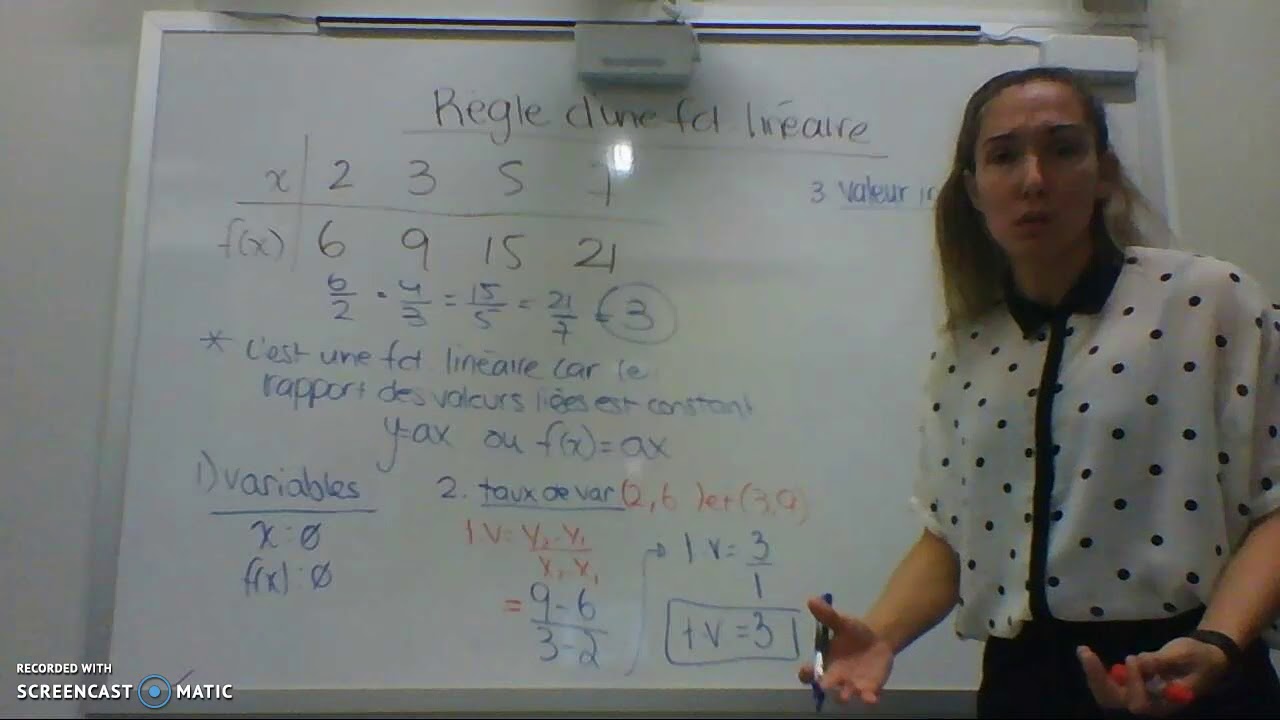 Règle d'une fct linéaire
x 2 3 5 7
f(x) 6 9 15 21
3 valeur
6/2 = 9/3 = 15/5 = 21/7 = 3
* C'est une fct linéaire car le
rapport des valeurs liées est constant
y=ax ou f(x)=ax
1) variables
x : ∅
f(x) : ∅
2. taux de var (2,6) et (3,9)
TV = Y₂-Y₁ / X₂-X₁
= 9-6 / 3-2
TV = 3/1
TV = 3
RECORDED WITH
SCREENCAST MATIC